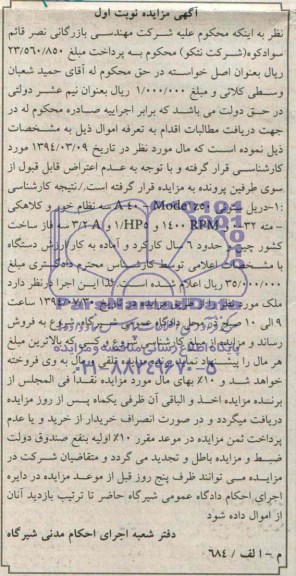 آگهی مزایده نوبت اول
نظر به اینکه محکوم علیه شرکت مهندسی بازرگانی نصر قائم
سوادکوه(شرکت نتکو) محکوم به پرداخت مبلغ ۲۳/۵۶۰/۸۵۰
ریال بعنوان اصل خواسته در حق محکوم له آقای حمید شعبان
وسطی کلائی و مبلغ ۱/۰۰۰/۰۰۰ ریال بعنوان نیم عشر دولتی
در حق دولت می باشد که برابر اجراییه صادره محکوم له در
جهت دریافت مطالبات اقدام به تعرفه اموال ذیل به مشخصات
ذیل نموده است که مال مورد نظر در تاریخ ۱۳۹۴/۰۳/۰۹ مورد
کارشناسی قرار گرفته و با توجه به عدم اعتراض قابل قبول از
سوی طرفین پرونده به مزایده قرار گرفته است./نتیجه کارشناسی
:۱-دریل ستونی A۴۰ - Mode z۵۰ سه نظام خور و کلاهکی
- مته ۳۲ - ۱۴۰۰ RPM و ۱/HP۵ و ۳/۲A سه فاز ساخت
کشور چین حدود ۶ سال کارکرد و آماده به کار ارزش دستگاه
با مشخصات اعلامی توسط کارشناس محترم دادگستری مبلغ
۳۵/۰۰۰/۰۰۰ ریال اعلام شده است لذا این اجرا درنظر دارد
ملک مورد نظر را از طریق مزایده در تاریخ ۱۳۹۴/۰۷/۲۰ ساعت
۹ الی ۱۰ صبح در محل دادگاه عمومی شیرگاه شروع به فروش
رساند و مزایده از مبلغ کارشناسی شروع و کسی که بالاترین مبلغ
هر مال را پیشنهاد نماید برنده مزایده تلقی و مال به وی فروخته
خواهد شد و ۱۰٪ بهای مال مورد مزایده نقدا فی المجلس از
برنده مزایده اخذ و الباقی آن ظرفی یکماه پس از روز مزایده
دریافت میگردد و در صورت انصراف خریدار از خرید و یا عدم
پرداخت ثمن مزایده در موعد مقرر ۱۰٪ اولیه بنفع صندوق دولت
ضبط و مزایده باطل و تجدید می گردد و متقاضیان شرکت در
مزایده می توانند ظرف پنج روز قبل از موعد مزایده در دایره
اجرای احکام دادگاه عمومی شیرگاه حاضر تا ترتیب بازدید آنان
از اموال داده شود
دفتر شعبه اجرای احکام مدنی شیرگاه
م - الف / ۶۸۴
پایگاه اطلاع رسانی مناقصه و مزایده
۰۲۱-۸۸۳۴۹۶۷۰-۵